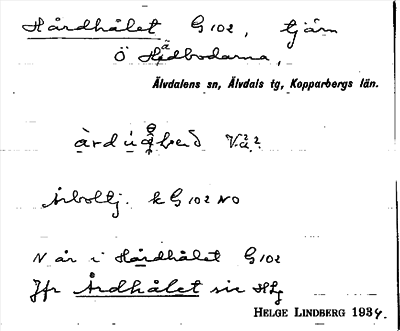 Hårdhålet G 102, tjärn
Ö Hädbodarna,
Älvdalens sn, Älvdals tg, Kopparbergs län.
Årboltj. k G 102 NO
N är i Hårdhålet G 102
Jfr Årdhålet
HELGE LINDBERG 1934.